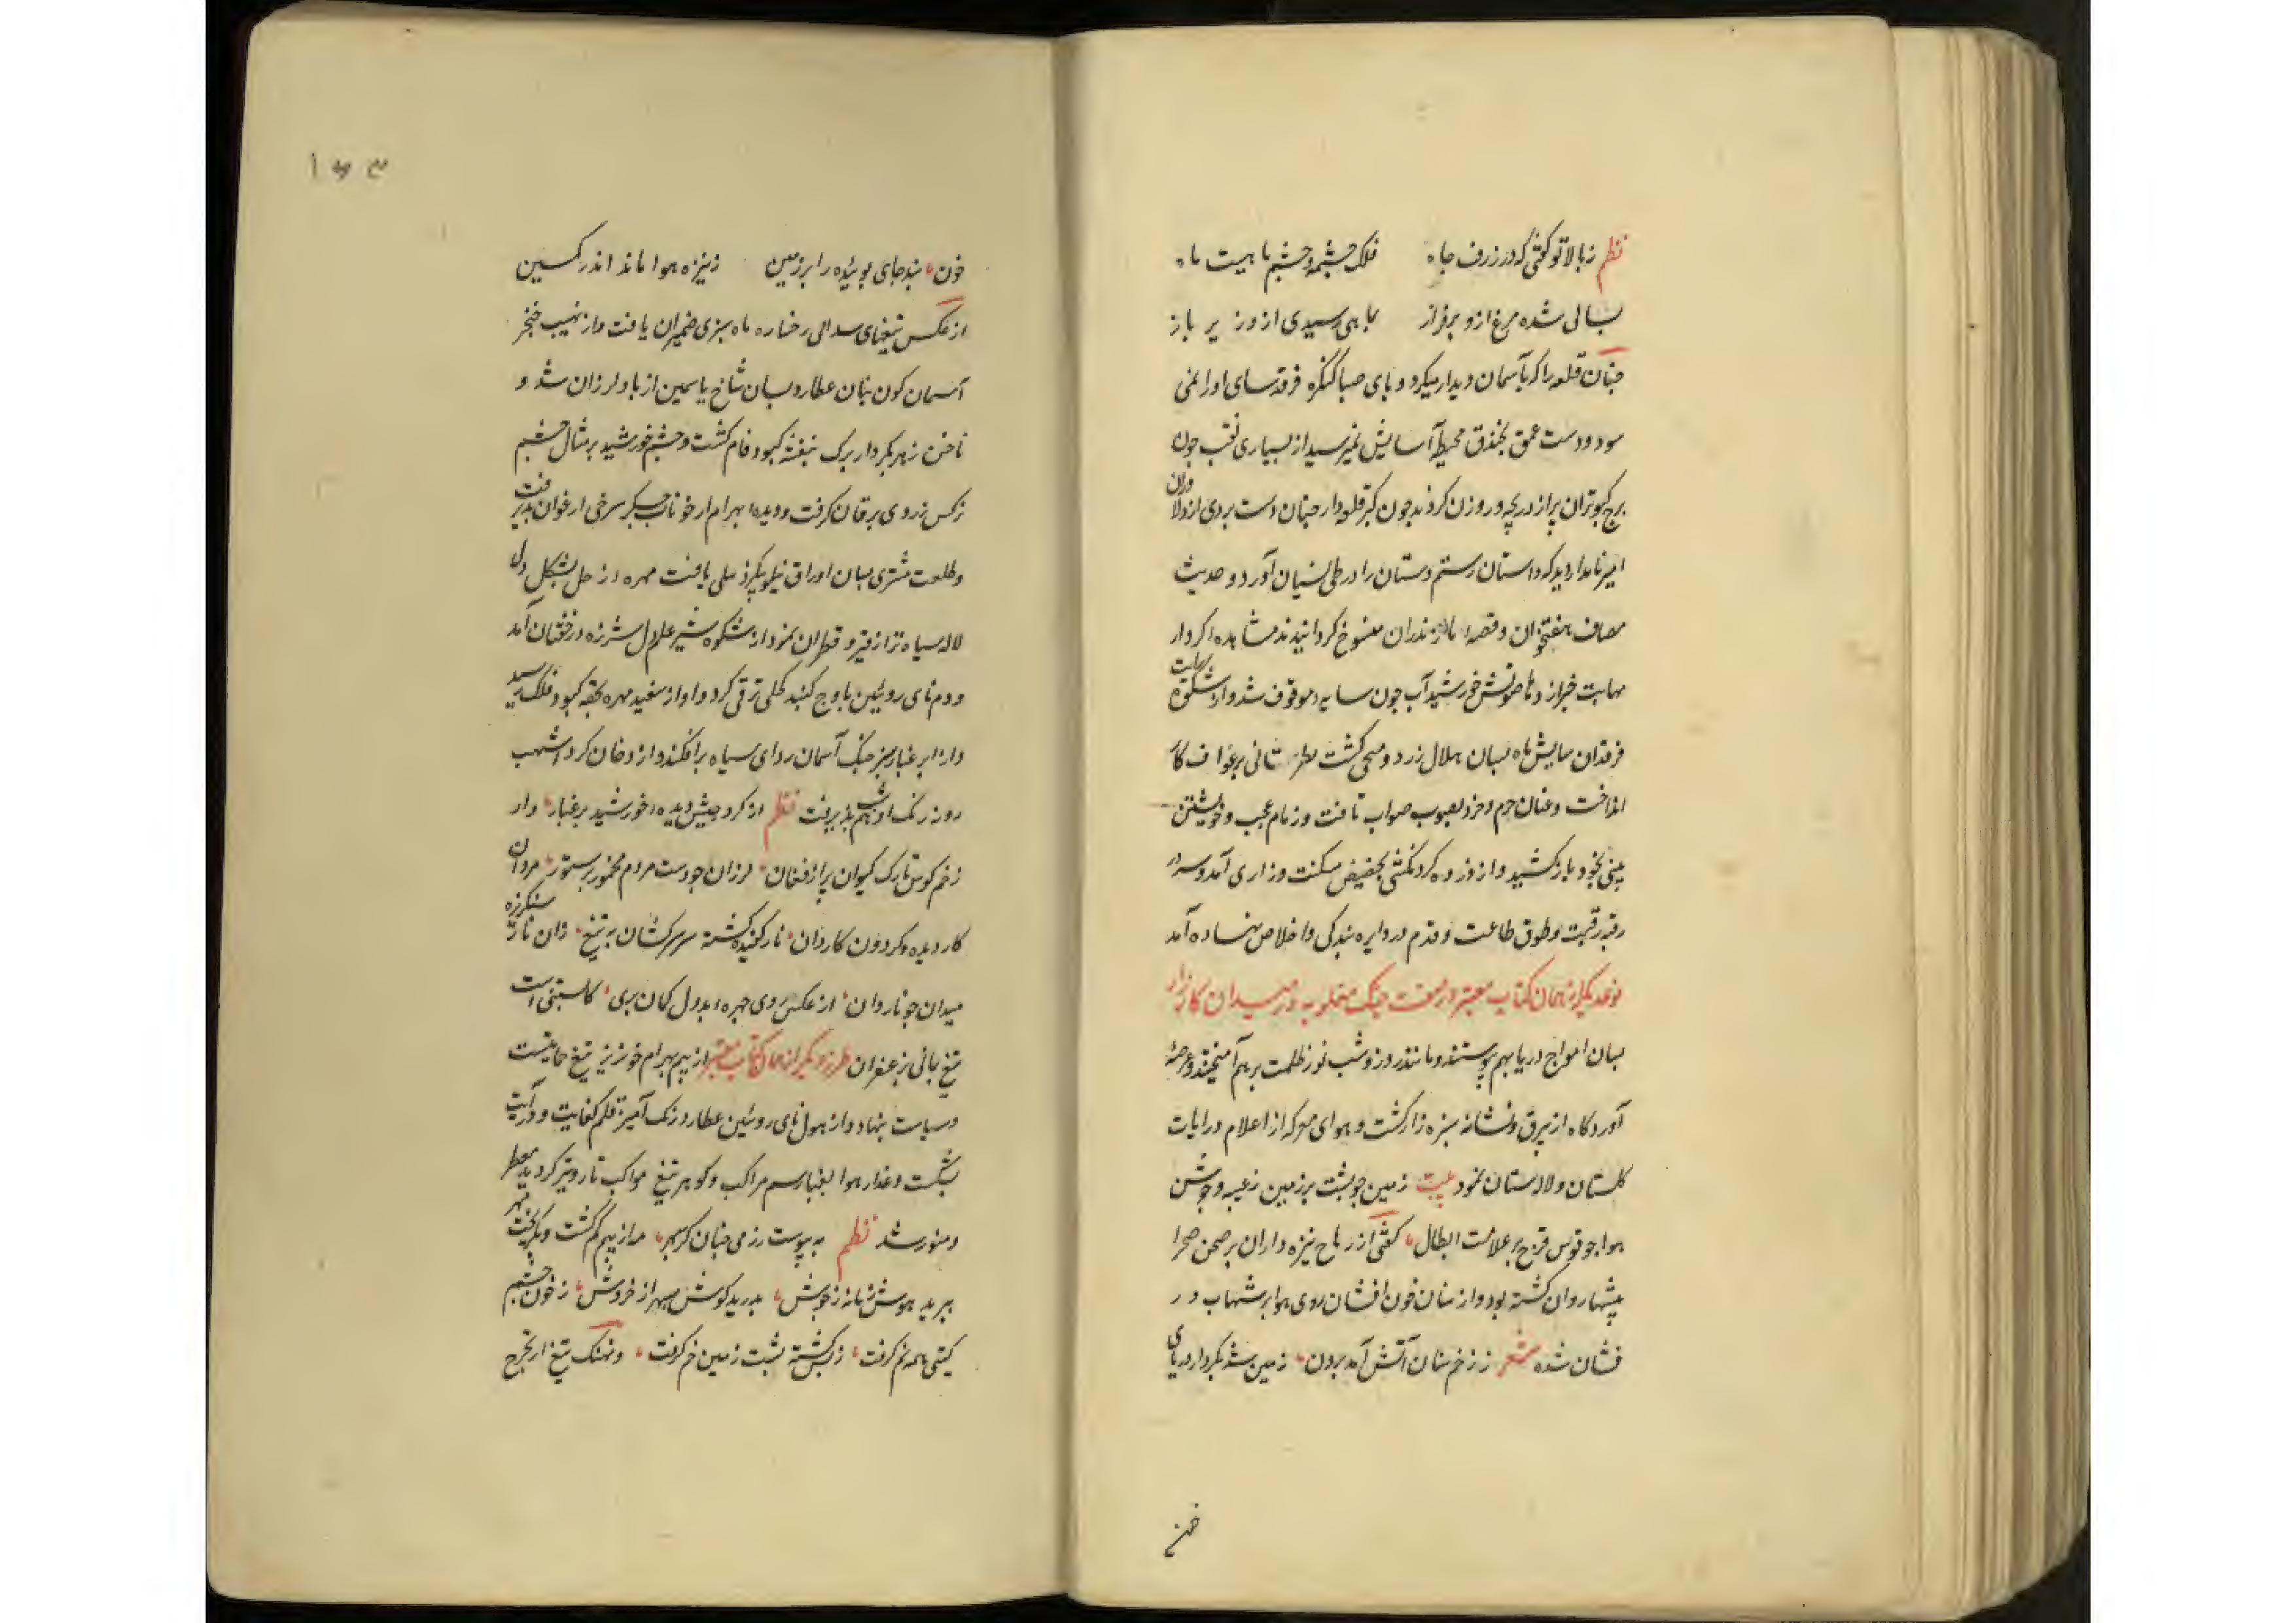 نظم ز بالا تو گفتی که در ژرف چاه فلک چشمه و چشم ماهیست ماه
بسالی شده مرغ ازو بر فراز بماهی رسیدی ازو زیر باز
چنان قلعه را که بآسمان دیدار میکرد و پای صبا کنگره فرقدسای اورا نمی
سود و دست عمق بخندق محیط آسایش نمیرسید از بسیاری نقب چون
برج کبوتران پر از دریچه و روزن کردند چون کبر قلعه دار چنان دست بردی از دلاوران
امیر نامدار دید که داستان رستم دستان را در طی نسیان آورد و حدیث
مصاف هفتخوان و قصهٔ مازندران منسوخ گردانیدند مشاهده کردار
مهابت خبر از دها صولتش خورشید آب چون سایه موقوف شد و از شکوه رایت
فرقدان سایش ماه بسان هلال زرد و منحی گشت نظر ثانی بر عواقب کار
انداخت و عنان حزم و خرد بصوب صواب تافت و زمام عجب و خویشتن
بینی بخود باز کشید و از ذروه گردنکشی بحضیض مسکنت و زاری آمد و سر در
رقبه رقیت و طوق طاعت و قدم در دایره بندگی و اخلاص نهاده آمد
نوعدیگر از همان کتاب معتبر در صفت جنگ مغلوبه در میدان کارزار
بسان امواج دریا بهم پیوستند و مانند روز و شب نور و ظلمت بر هم آمیختند و عرصهٔ
آوردگاه از بیرق و نشانه سبزه زار گشت و هوای معرکه از اعلام و رایات
گلستان و لالستان نمود بیت زمین چو پشت بر زمین ز عیبه و جوشن
هوا چو قوس قزح بر علامت ابطال گفتی از رماح نیزه داران بر صحن صحرا
بیشها روان گشته بود و از سنان خون افشان روی هوا بر شهاب در
فشان شده شعر ز زخم سنان آتش آمد برون زمین شد بکردار دریای
خون
۱۵۳
خون نبد جای پوینده را بر زمین ز نیزه هوا ماند اندر کمین
از عکس تیغهای سدابی رخساره ماه سبزی ضمیران یافت و از نهیب خنجر
آسمان گون بنان عطارد بسان شاخ یاسمین از باد لرزان شد و
ناخن زهره بکردار برگ بنفشه کبود فام گشت و چشم خورشید بر مثال چشم
نرگس زردی یرقان گرفت و دیده بهرام از خوناب جگر سرخی ارغوان پذیرفت
و طلعت مشتری بسان اوراق نیلوفر نیلی یافت مهره زحل بشکل دل
لاله سیاه تر از قیر و قطران نمود از شکوه شیر علم دل شرزه در خفقان آمد
و دم نای روئین باوج گنبد کحلی ترقی کرد و آواز سفید مهره بقبه کبود فلک رسید
و از ابر غبار سبز خنگ آسمان ردای سیاه بر افکند و از دخان گرد اشهب
روز رنگ ادهم شب پذیرفت نظم از گرد جیش دیده خورشید پر غبار وز
زخم کوس تارک کیوان پر از فغان لرزان چو دست مردم مخمور بر ستور مردان
کار دیده و گردون کاردان نارکفیده گشته سر سرکشان به تیغ زان نار سنگریزه
میدان چو ناردان از عکس روی چهره بددل گمان بری کابستنی است
تیغ یمانی بزعفران طرز دیگر از همان کتاب معتبر از بیم بهرام خونریز تیغ حمایت
و سیاست بنهاد و از هول نای روئین عطارد رنگ آمیز قلم کفایت و درایت
بشکست و عذار هوا بغبار سم مراکب و گوهر تیغ مواکب تار و تیره گردید معطر
و منور شد نظم به پیوست رزمی چنان کز سپهر مه از بیم گم گشت و بگریخت مهر
ببرید هوش زمانه ز جوش بدرید گوش سپهر از خروش ز خون چشم
گیتی همه نم گرفت ز بس کشته پشت زمین خم گرفت و نهنگ تیغ از بحر چرخ